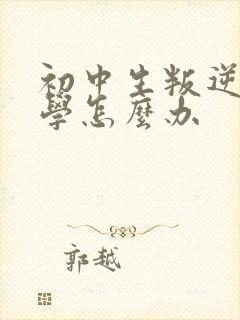 初中生叛逆
學怎麼办
郭越